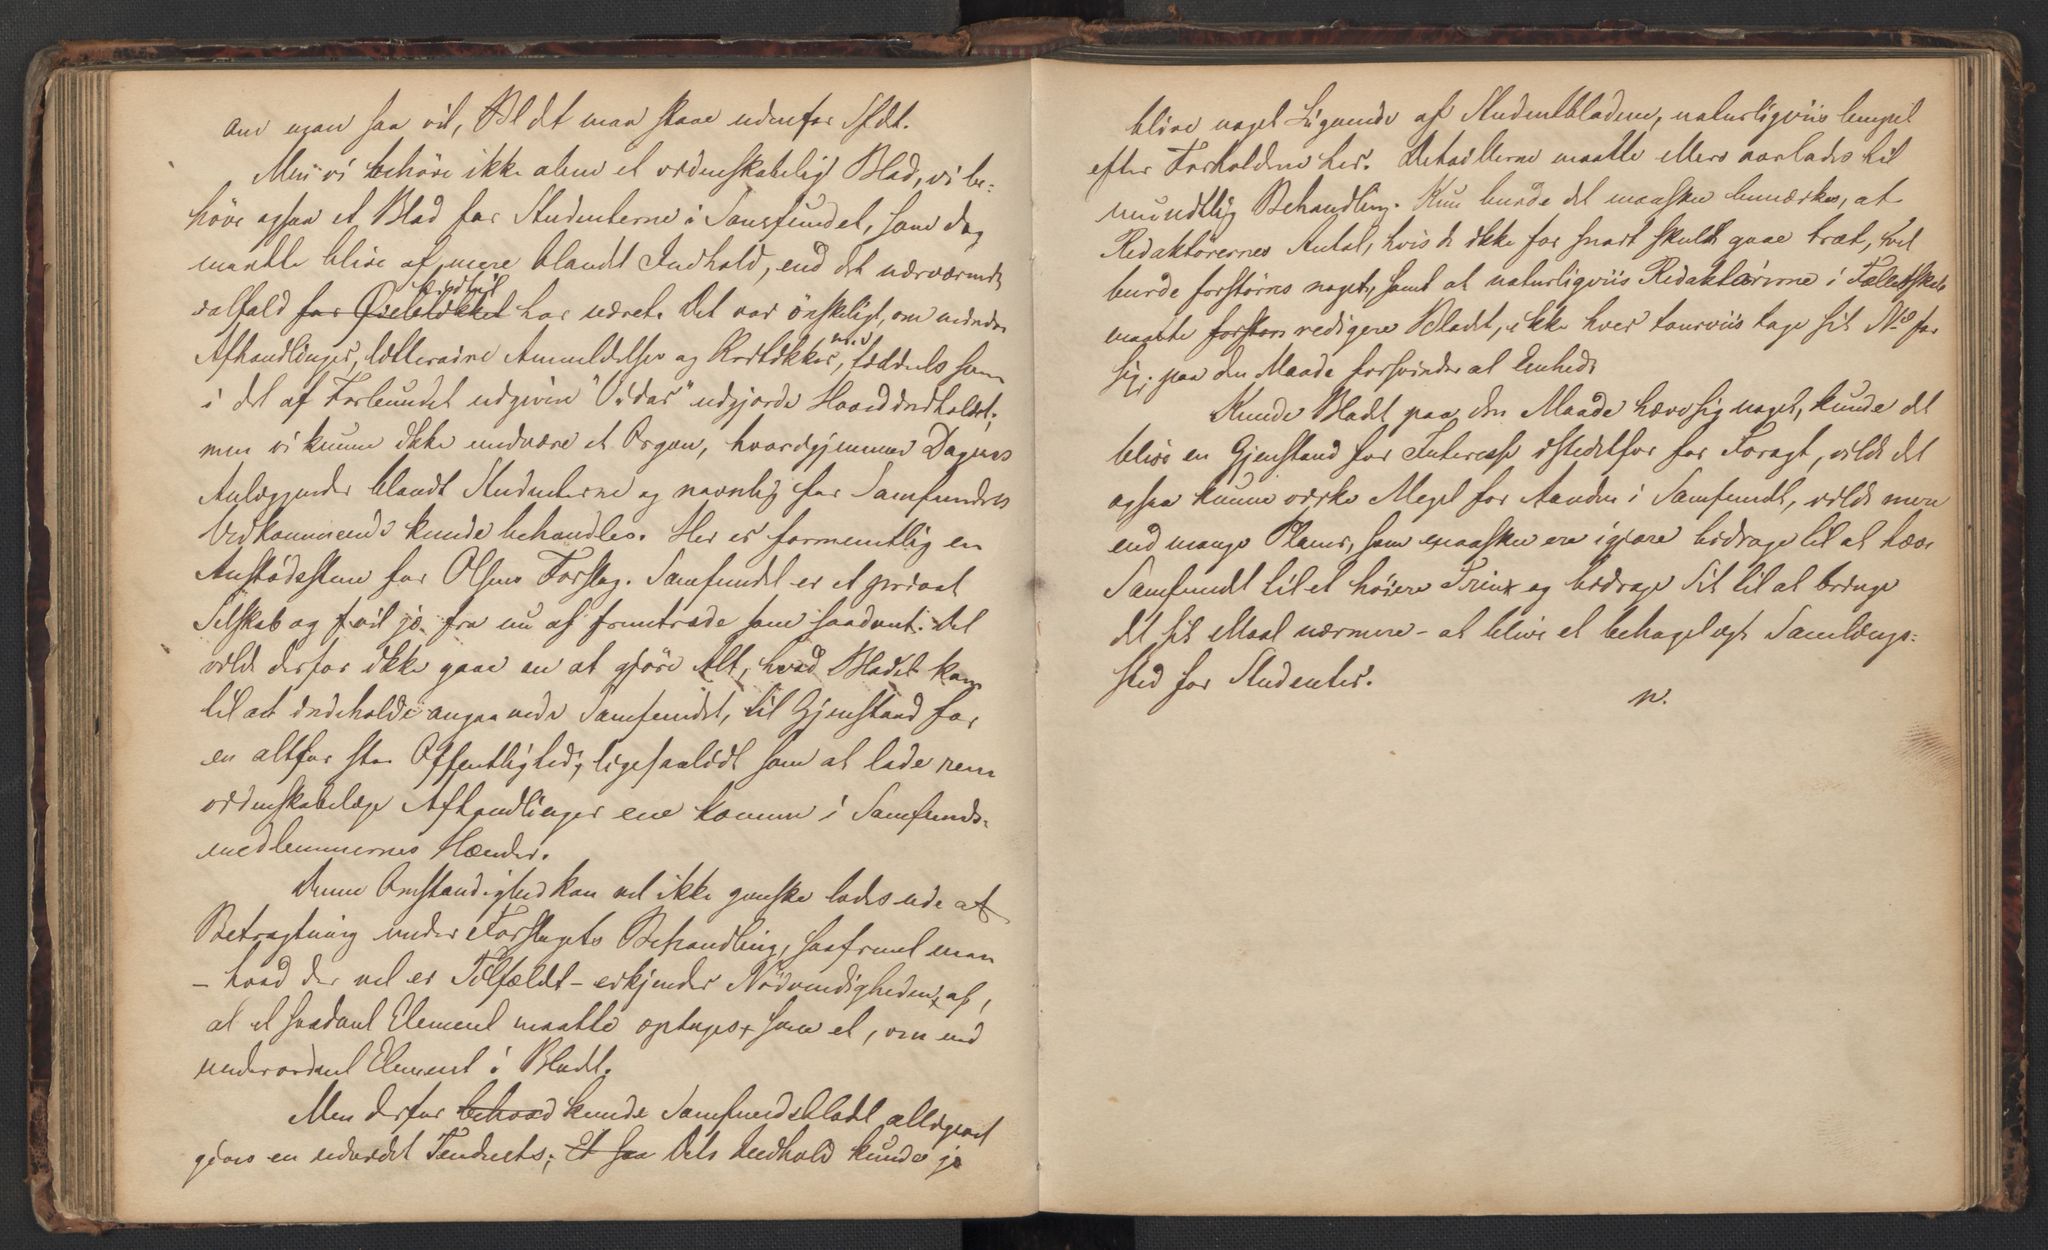 om man saa vil, Bl dt maa staae udenfor Sfdt.
Men vi behøve ikke alene et videnskabeligt Blad, vi be-
høve ogsaa et Blad for Studenterne i Samfundet, som dog
maatte blive af mere blandet Indhold, end det nærværende
ialfald for Øieblikket har været. Det var ønskeligt, om mindre
Afhandlinger, litteraire Anmeldelser og Kritikker, tildeels som
i det af Forbundet udgivne "Vidar" udgjorde Hovedindholdet;
men vi kunne ikke undvære et Organ, hvorigjennem Dagens
Anliggender blandt Studenterne og navnlig for Samfundets
Vedkommende kunde behandles. Her er formentlig en
Anstødssteen for Olsens Forslag. Samfundet er et privat
Selskab og vil jo fra nu af fremtræde som saadant. Det
vilde derfor ikke gaae an at gjøre Alt, hvad Bladet kom
til at indeholde angaaende Samfundet, til Gjenstand for
en altfor stor Offentlighed, ligesaalidt som at lade rene
videnskabelige Afhandlinger ene komme i Samfunds-
medlemmernes Hænder.
Denne Omstændighed kan vel ikke ganske lades ude af
Betragtning under Forslagets Behandling, saafremt man
– hvad der vel er Tilfældet – erkjender Nødvendigheden af,
at et saadant Element maatte optages som et, om end
underordnet Element i Bladet.
Men derfor behoved kunde Samfundsbladet alligevel
gives en udvidet Tendents; Et saa Dets Indhold kunde jo
blive noget Lignende af Studentbladene, naturligviis lempet
efter Forholdene her. Detaillerne maatte ellers overlades til
mundtlig Behandling. Kun burde det maaskee bemærkes, at
Redaktørernes Antal, hvis de ikke for snart skulde gaae træt, vel
burde forstørres noget, samt at naturligviis Redaktørerne i Fællesskab
maatte redigere Bladet, ikke hver tourviis tage sit No for
sig; paa den Maade forsvinder al Enhed.
Kunde Bladet paa den Maade hæve sig noget, kunde det
blive en Gjenstand for Interesse istedetfor for Foragt, vilde det
ogsaa kunne virke Meget for Aanden i Samfundet, vilde mere
end mange Planer, som maaskee ere igjære bidrage til at hæve
Samfundet til et høiere Trin og bidrage Sit til at bringe
det sit Maal nærmere – at blive et behageligt Samlings-
sted for Studenter.
n.